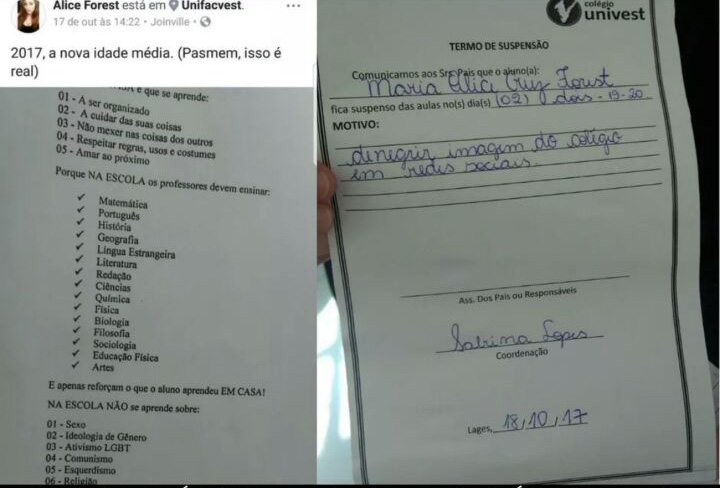 Alice Forest está em Unifacvest.
17 de out às 14:22 · Joinville ·
2017, a nova idade média. (Pasmem, isso é
real)
e que se aprende:
01 - A ser organizado
02 - A cuidar das suas coisas
03 - Não mexer nas coisas dos outros
04 - Respeitar regras, usos e costumes
05 - Amar ao próximo
Porque NA ESCOLA os professores devem ensinar:
✓ Matemática
✓ Português
✓ História
✓ Geografia
✓ Língua Estrangeira
✓ Literatura
✓ Redação
✓ Ciências
✓ Química
✓ Física
✓ Biologia
✓ Filosofia
✓ Sociologia
✓ Educação Física
✓ Artes
E apenas reforçam o que o aluno aprendeu EM CASA!
NA ESCOLA NÃO se aprende sobre:
01 - Sexo
02 - Ideologia de Gênero
03 - Ativismo LGBT
04 - Comunismo
05 - Esquerdismo
06 - Religião
colégio
univest
TERMO DE SUSPENSÃO
Comunicamos aos Srs Pais que o aluno(a):
Maria Alice Cruz Forest
fica suspenso das aulas no(s) dia(s) (02) dias - 19-20
MOTIVO:
denegrir imagem do colégio
em redes sociais.
Ass. Dos Pais ou Responsáveis
Sabrina Lopes
Coordenação
Lages, 18/10/17